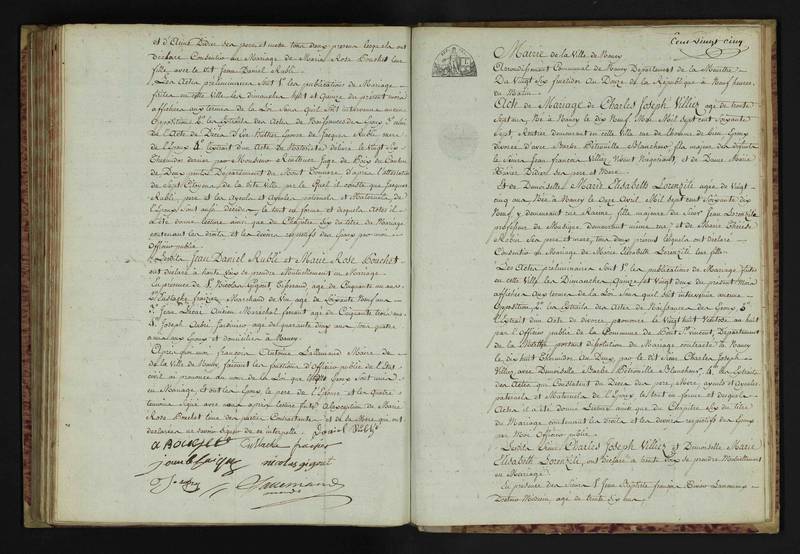 et d'Anne Didier ses pere et mere tous deux presens lesquels ont
Déclaré Consentir au Mariage de Marie Rose Pouchet leur
fille avec le dit Jean Daniel Rublé
Les Actes préliminaires sont 1° les publications de Mariage
faites en cette Ville les Dimanches huit et Quinze du présent mois
affichées aux termes de la Loi sans qu'il soit intervenu aucune
Opposition 2° les Extraits des Actes de Naissances des Epoux 3° celui
de l'Acte de Décès de
de Jacques Rublé
de l'Epoux 4° l'Extrait d'un Acte de Notoriété délivré le Vingt Six
Thermidor dernier par Monsieur Juge de Paix du Canton
de Deux ponts Département du Mont Tonnerre d'après l'attestation
de Sept Citoyens de la dite Ville par lequel il conste que Jacques
Rublé pere et les Ayeuls et Ayeules paternels et Maternels de
l'Epoux sont aussi Décédés, le tout en forme et desquels Actes il
a été donné lecture ainsi que du Chapitre Six du titre du Mariage
contenant les droits et les devoirs respectifs des Epoux par moi
Officier public
Lesdits Jean Daniel Rublé et Marie Rose Pouchet
ont déclaré à haute Voix se prendre Mutuellement en Mariage
En presence de 1° Nicolas Gigout Tisserand agé de Cinquante un ans
2° Eustache Marchand de Vin agé de Soixante Neuf ans
3° Jean Marechal ferrant agé de Cinquante trois ans
4° Joseph agé de quarante deux ans tous quatre
amis des Epoux et domiciliés à Nancy
Après quoi moi François Antoine Lallemand Maire de
de la Ville de Nancy, faisant les fonctions d'Officier public de l'Etat
civil ai prononcé au nom de la Loi que lesdits Epoux sont unis
en Mariage et ont les Epoux, le pere de l'Epouse et les quatre
temoins signé avec moi après lecture faite à l'exception de Marie
Rose Pouchet l'une des parties Contractantes et de sa Mere qui ont
déclaré ne savoir signer de ce interpellé
Daniel Rublé
nicolas gigout
Lallemand
Cent Vingt Cinq
Mairie de la Ville de Nancy
Arrondissement Communal de Nancy Département de la Meurthe
Du Vingt Six fructidor An Douze de la République à Neuf heures
du Matin
Acte de Mariage de Charles Joseph Villiez agé de trente
Sept ans, Né à Nancy le Neuf Mai Mil Sept cent Soixante
Sept, Rentier demeurant en cette Ville rue de l'homme de bien Epoux
divorcé d'avec Barbe Pétronille Blancheur fils majeur des défunts
le Sieur Jean françois Villiez Vivant Négociant et de Dame Marie
ses pere et mere
Et de Demoiselle Marie Elisabeth Lorenzile agée de Vingt
cinq ans Née à Nancy le Onze Avril Mil Sept cent Soixante dix
Neuf y demeurant rue fille majeure du Sieur Jean Lorenzile
professeur de Musique demeurant même rue et de Marie Thérèse
Robin Ses pere et mere, tous deux presens lesquels ont déclaré
Consentir au Mariage de Marie Elisabeth Lorenzile leur fille
Les Actes préliminaires sont 1° les publications de Mariage faites
en cette Ville les Dimanches Quinze et Vingt deux du présent Mois
affichées aux termes de la Loi sans qu'il soit intervenu aucune
Opposition 2° les Extraits des Actes de Naissances des Epoux 3°
l'Extrait d'un Acte de divorce prononcé le Vingt huit Ventose an huit
par l'Officier public de la Commune de Pont St Vincent, Département
de la Meurthe portant dissolution du Mariage contracté à Nancy
le dix huit An Deux par le dit Sieur Charles Joseph
Villiez avec Demoiselle Barbe Pétronille Blancheur 4° les Extraits
des Actes qui Constatent du Décès des pere, Mere, ayeuls et Ayeules
paternels et Maternels de l'Epoux le tout en forme et desquels
Actes il a été donné Lecture ainsi que du Chapitre Six du titre
du Mariage contenant les Droits et les devoirs respectifs des Epoux
par Moi Officier public
Lesdits Sieur Charles Joseph Villiez et Demoiselle Marie
Elisabeth Lorenzile, ont déclaré à haute Voix se prendre Mutuellement
en Mariage
En presence des Sieurs 1° Jean Baptiste françois
Docteur Médecin agé de trente Six ans